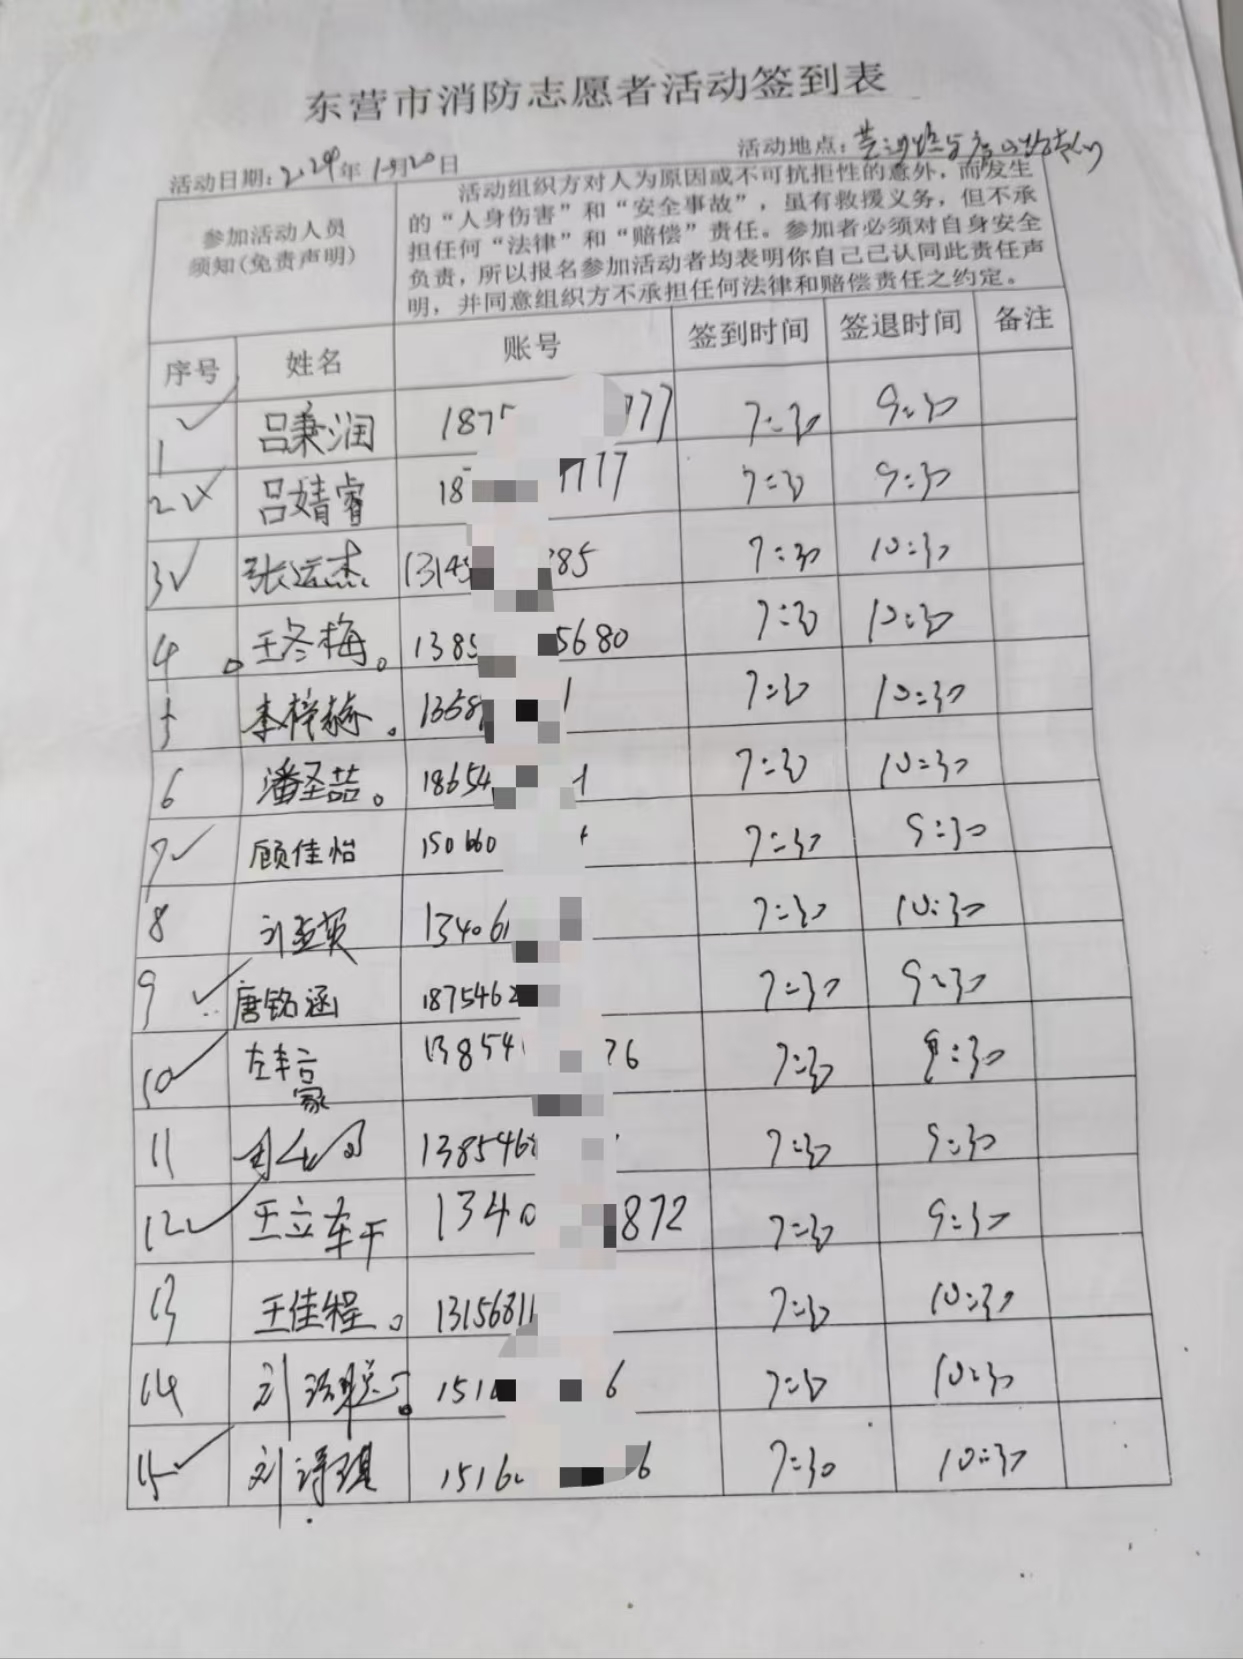 东营市消防志愿者活动签到表
活动日期：2024年1月20日
活动地点：
参加活动人员
须知（免责声明）
活动组织方对人为原因或不可抗拒性的意外，而发生
的“人身伤害”和“安全事故”，虽有救援义务，但不承
担任何“法律”和“赔偿”责任。参加者必须对自身安全
负责，所以报名参加活动者均表明你自己己认同此责任声
明，并同意组织方不承担任何法律和赔偿责任之约定。
序号 姓名 账号 签到时间 签退时间 备注
1 吕秉润 187 777 7:30 9:30
2 吕婧睿 18 777 7:30 9:30
3 张运杰 1314 85 7:30 10:30
4 王冬梅 1385 5680 7:30 10:30
5 李梓赫 1358 1 7:30 10:30
6 潘圣喆 18654 1 7:30 10:30
7 顾佳怡 150660 7:30 9:30
8 刘孟英 134061 7:30 10:30
9 唐铭涵 1875462 7:30 9:30
10 左梓言家 13854 76 7:30 9:30
11 1385468 7:30 9:30
12 王立轩 1340 872 7:30 9:30
13 王佳程 13156811 7:30 10:30
14 刘 151 6 7:30 10:30
15 刘诗琪 1516 6 7:30 10:30